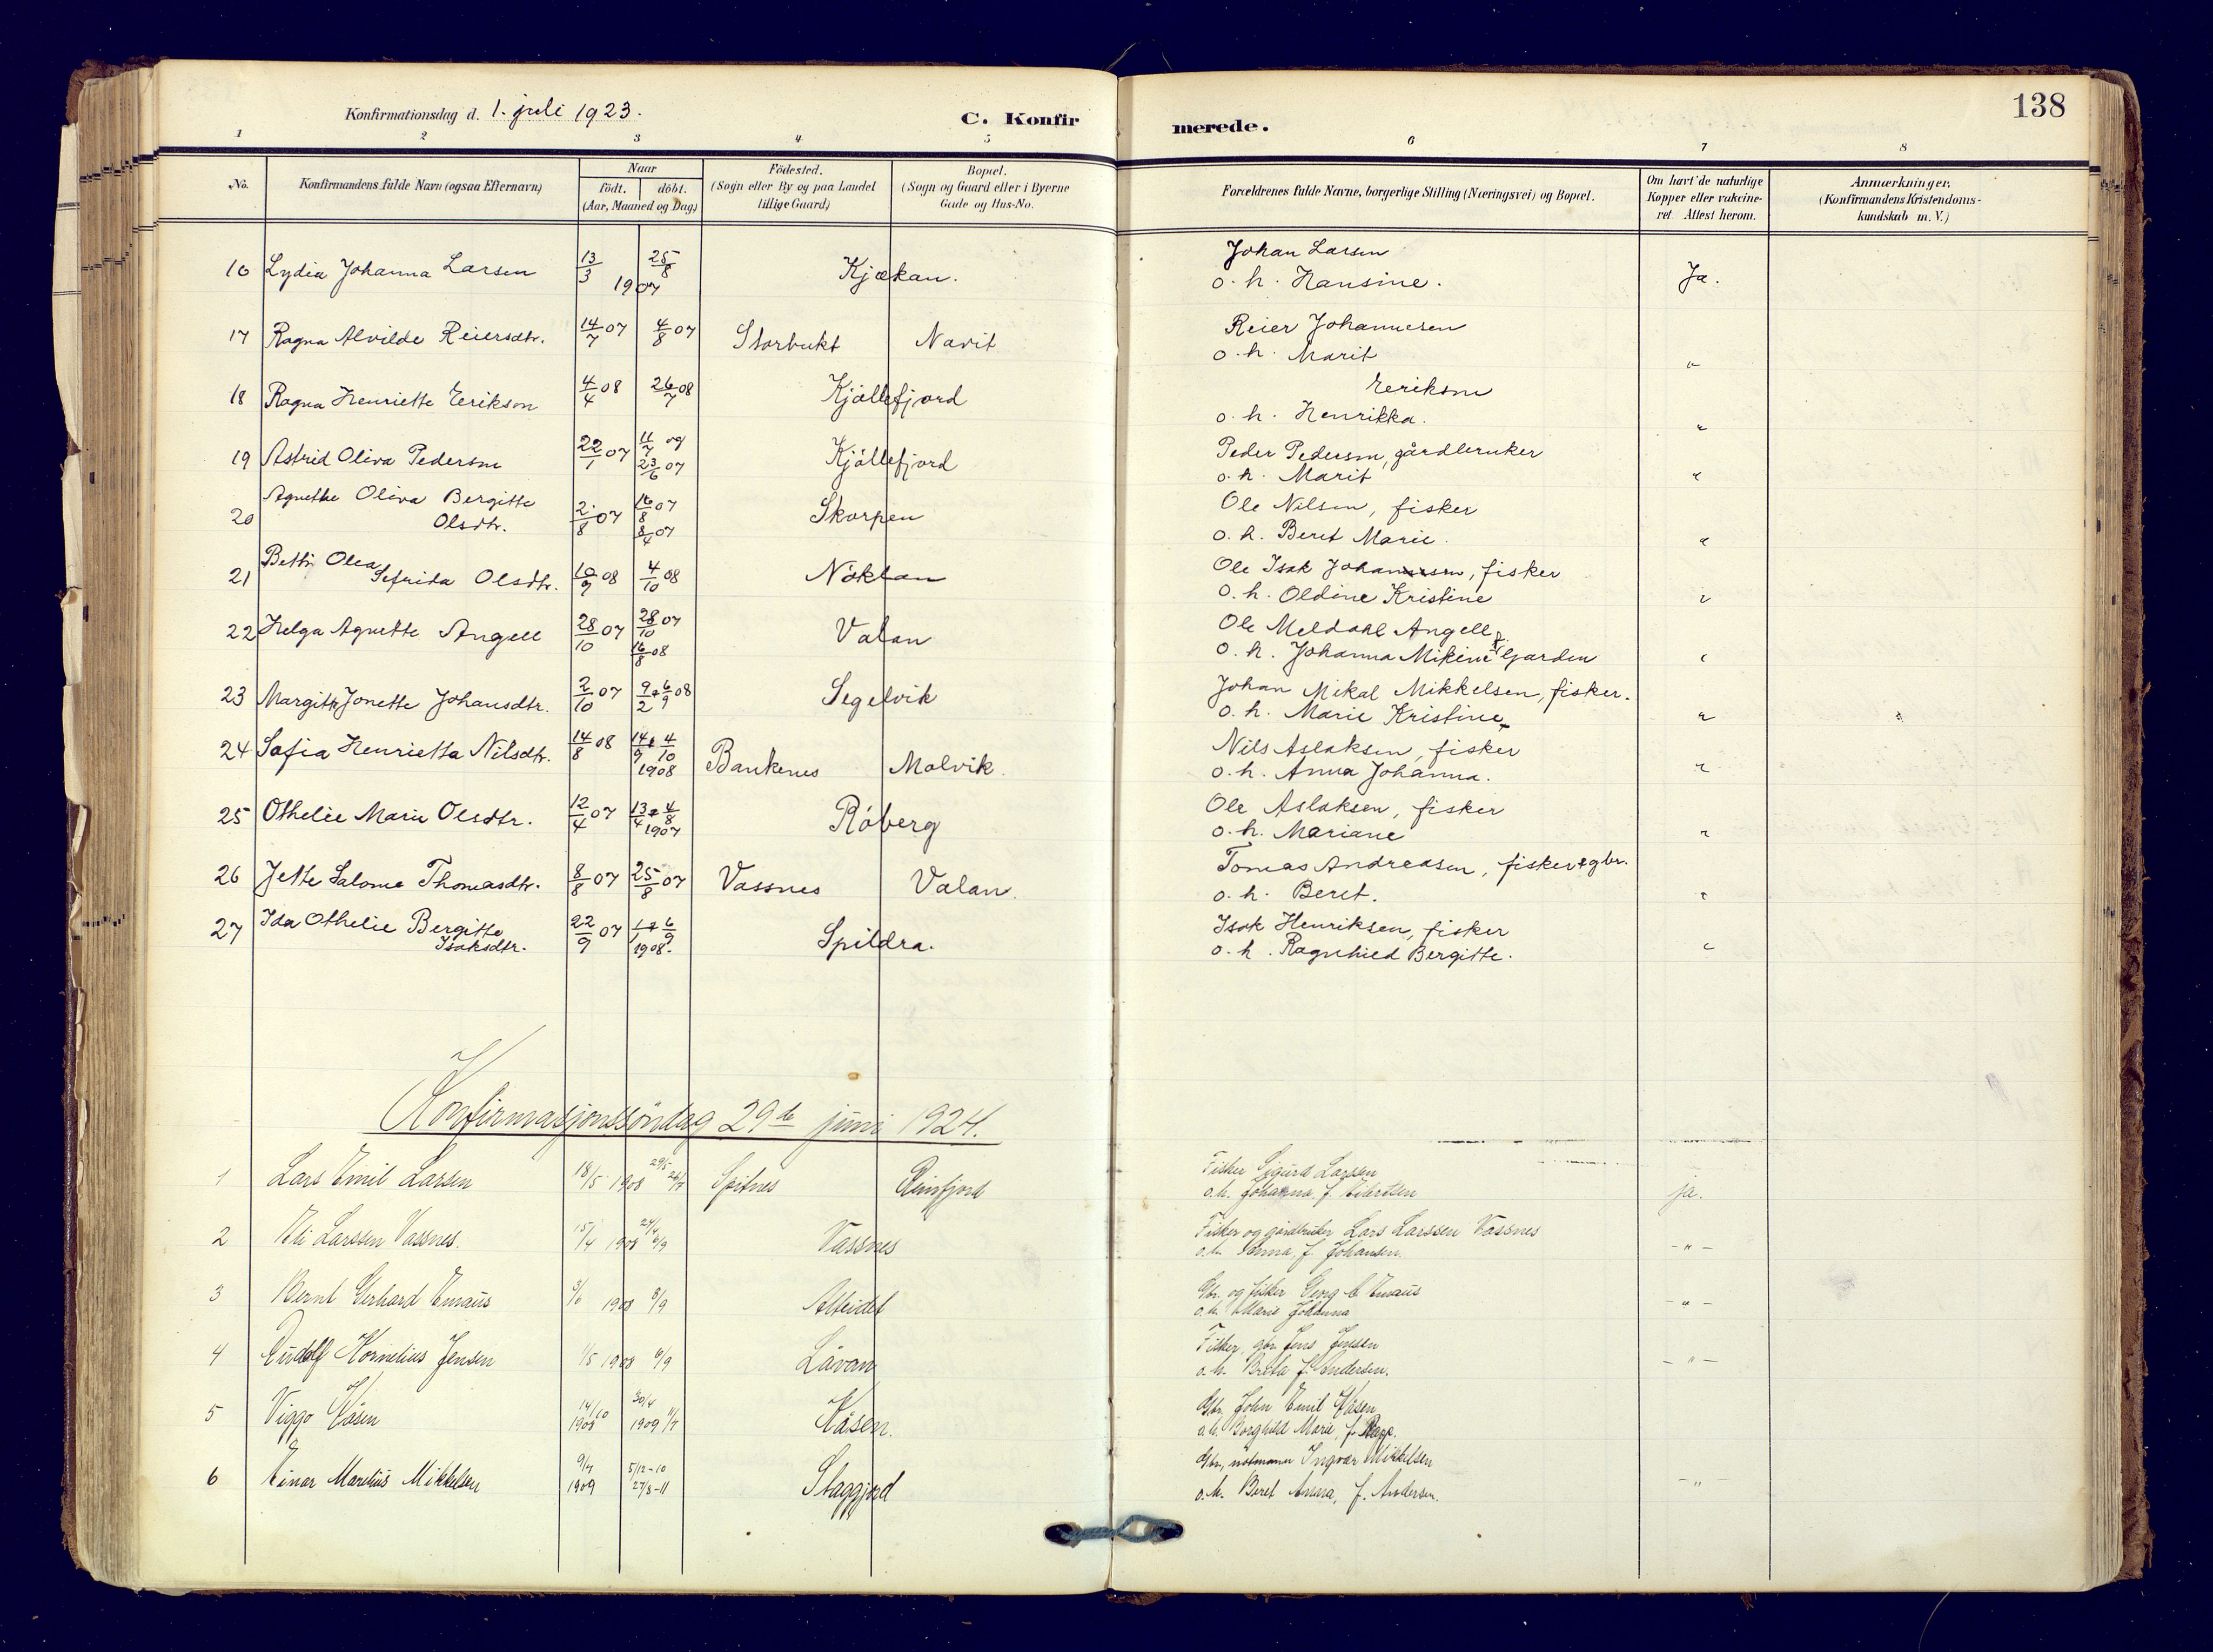 Konfirmationsdag d. 1. juli 1923.
C. Konfirmerede.
138
1 2 3 4 5 6 7 8
No.
Konfirmandens fulde Navn (ogsaa Efternavn)
Naar
födt. döbt.
(Aar, Maaned og Dag)
Födested.
(Sogn eller By og paa Landet
tillige Gaard)
Bopæl.
(Sogn og Gaard eller i Byerne
Gade og Hus-No.
Forældrenes fulde Navne, borgerlige Stilling (Næringsvei) og Bopæl.
Om havt de naturlige
Kopper eller vakcine-
ret. Attest herom.
Anmærkninger,
(Konfirmandens Kristendoms-
kundskab m. V.)
16 Lydia Johanna Larsen 13/3 25/8 1907 Kjækan. Johan Larsen
o. h. Hansine. Ja.
17 Ragna Alvilde Reiersdtr. 14/7 07 4/8 07 Storbukt Navit Reier Johannesen
o. h. Marit "
18 Ragna Henriette Eerikson 4/4 08 26/7 08 Kjöllefjord Eerikson
o. h. Henrikka. "
19 Astrid Oliva Pedersen 22/1 07 11/7 og 23/6 07 Kjöllefjord Peder Pedersen, gårdbruker
o. h. Marit "
20 Agnethe Oliva Bergitte
Olsdtr. 2/8 07 16/8 07 8/4 07 Skorpen Ole Nilsen, fisker
o. h. Beret Marie. "
21 Olea
Sefrida Olsdtr. 10/9 08 4/10 08 Nöklan Ole Isak Johansen, fisker
o. h. Oldine Kristine "
22 Helga Agnette Angell 28/10 07 28/10 07 16/8 08 Valan Ole Meldahl Angell
o. h. Johanna Mikine Garden "
23 Margith Jonette Johansdtr. 2/10 07 9/2 + 6/9 08 Segelvik Johan Mikal Mikkelsen, fisker.
o. h. Marie Kristine "
24 Safia Henrietta Nilsdtr. 14/8 08 14/9 + 4/10 1908 Bankenes Malvik. Nils Aslaksen, fisker
o. h. Anna Johanna. "
25 Othelie Marie Olsdtr. 12/4 07 13/4 + 4/8 1907 Röberg Ole Aslaksen, fisker
o. h. Mariane "
26 Jette Salome Thomasdtr. 8/8 07 25/8 07 Vassnes Valan. Tomas Andreasen, fisker + gbr.
o. h. Beret. "
27 Ida Othelie Bergitte
Isaksdtr. 22/9 07 1/1 + 6/9 1908. Spildra. Isak Henriksen, fisker
o. h. Ragnhied Bergitte. "
Konfirmasjonssöndag 29de juni 1924.
1 Lars Emil Larsen 18/5 1908 29/5 26/7 Spitnes Fisker Sigurd Larsen
o. h. Johanna, f. Eilertsen ja.
2 Eli Larssen Vassnes. 15/4 1908 24/4 6/9 Vassnes Fisker og gårdbruker Lars Larssen Vassnes
o. h. Anna, f. Johansen. - " -
3 Bernt Gerhard Emaus 3/6 1908 6/9 Alteidet Gbr. og fisker Georg Emaus
o. h. Marie Johanna - " -
4 Rudolf Kornelius Jensen 1/5 1908 6/9 Låvan Fisker, gbr. Jens Jenssen
o. h. Berta f. Andersen. - " -
5 Viggo Kåsen 14/10 1908 30/4 1909 11/7 Kåsen. Gbr. John Emil Kåsen
o. h. Borghild Marie, f. Rapp.
6 Einar Marelius Mikkelsen 9/4 1909 5/12-10 27/8-11 Staggjord Gbr., notmann Ingvar Mikkelsen
o. h. Beret Anna, f. Andersen. - " -